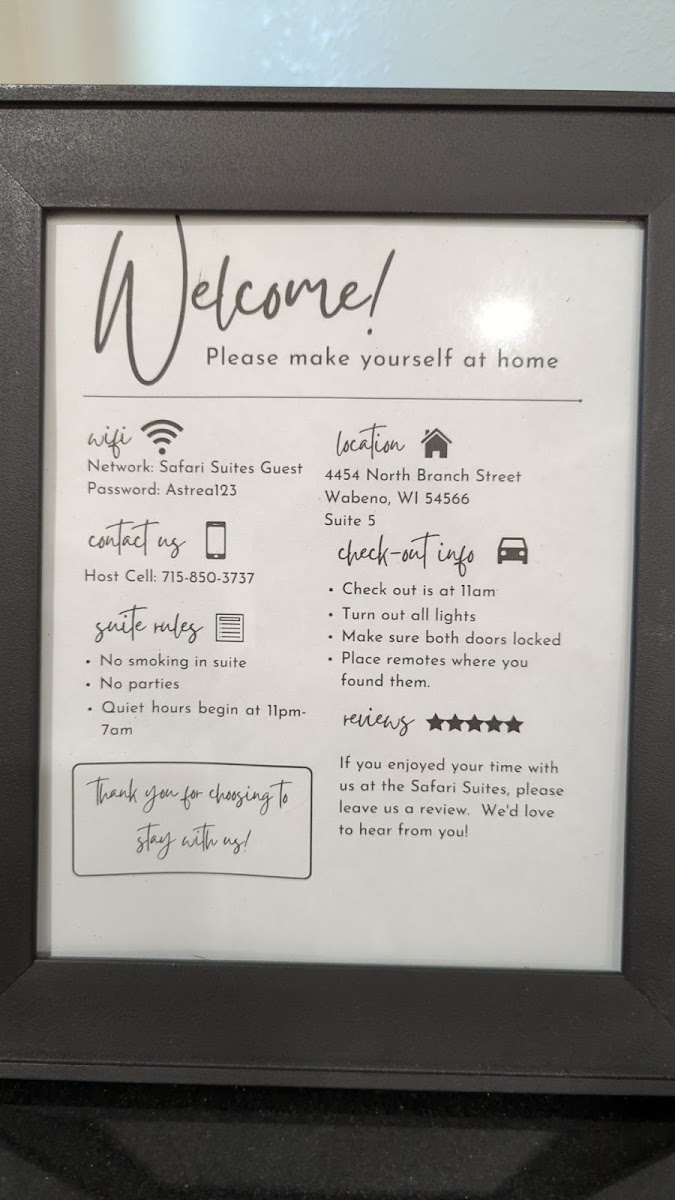 Welcome!
Please make yourself at home
wifi
Network: Safari Suites Guest
Password: Astrea123
contact us
Host Cell: 715-850-3737
suite rules
• No smoking in suite
• No parties
• Quiet hours begin at 11pm-
7am
Thank you for choosing to
stay with us!
location
4454 North Branch Street
Wabeno, WI 54566
Suite 5
check-out info
• Check out is at 11am
• Turn out all lights
• Make sure both doors locked
• Place remotes where you
found them.
reviews
If you enjoyed your time with
us at the Safari Suites, please
leave us a review. We'd love
to hear from you!